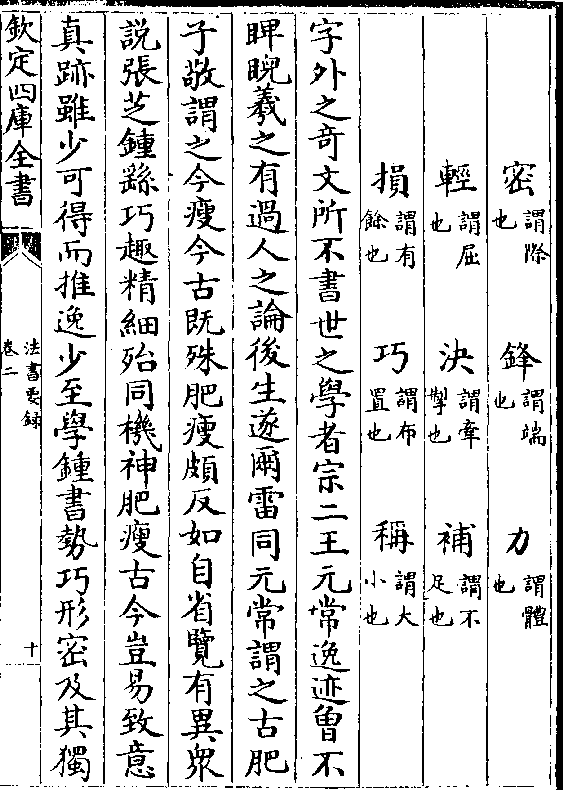 密謂際也　鋒謂端也　力謂體也
輕謂屈也　決謂牽掣也　補謂不足也
損謂有餘也　巧謂布置也　稱謂大小也
字外之奇文所不書世之學者宗二王元常逸迹曾不
睥睨羲之有過人之論後生遂爾雷同元常謂之古肥
子敬謂之今瘦今古既殊肥瘦頗反如自省覽有異衆
說張芝鍾繇巧趣精細殆同機神肥瘦古今豈易致意
真跡雖少可得而推逸少至學鍾書勢巧形密及其獨
欽定四庫全書
法書要録
卷二
十